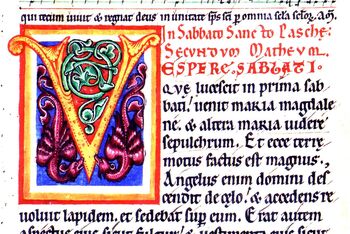 qui tecum vivit & regnat deus in unitate sps sci p omnia scla sclor. Am.
In Sabbato Sancto Pasche
Secundum Matheum.
V ESPERE SABBATI.
Que lucescit in prima sab
bati. venit maria magdale
ne. & altera maria videre
sepulchrum. Et ecce terre
motus factus est magnus.
Angelus enim domini des
cendit de celo. & accedens re
voluit lapidem. et sedebat sup eum. Erat autem
aspectus eius sicut fulgur. & vestimenta eius sicut